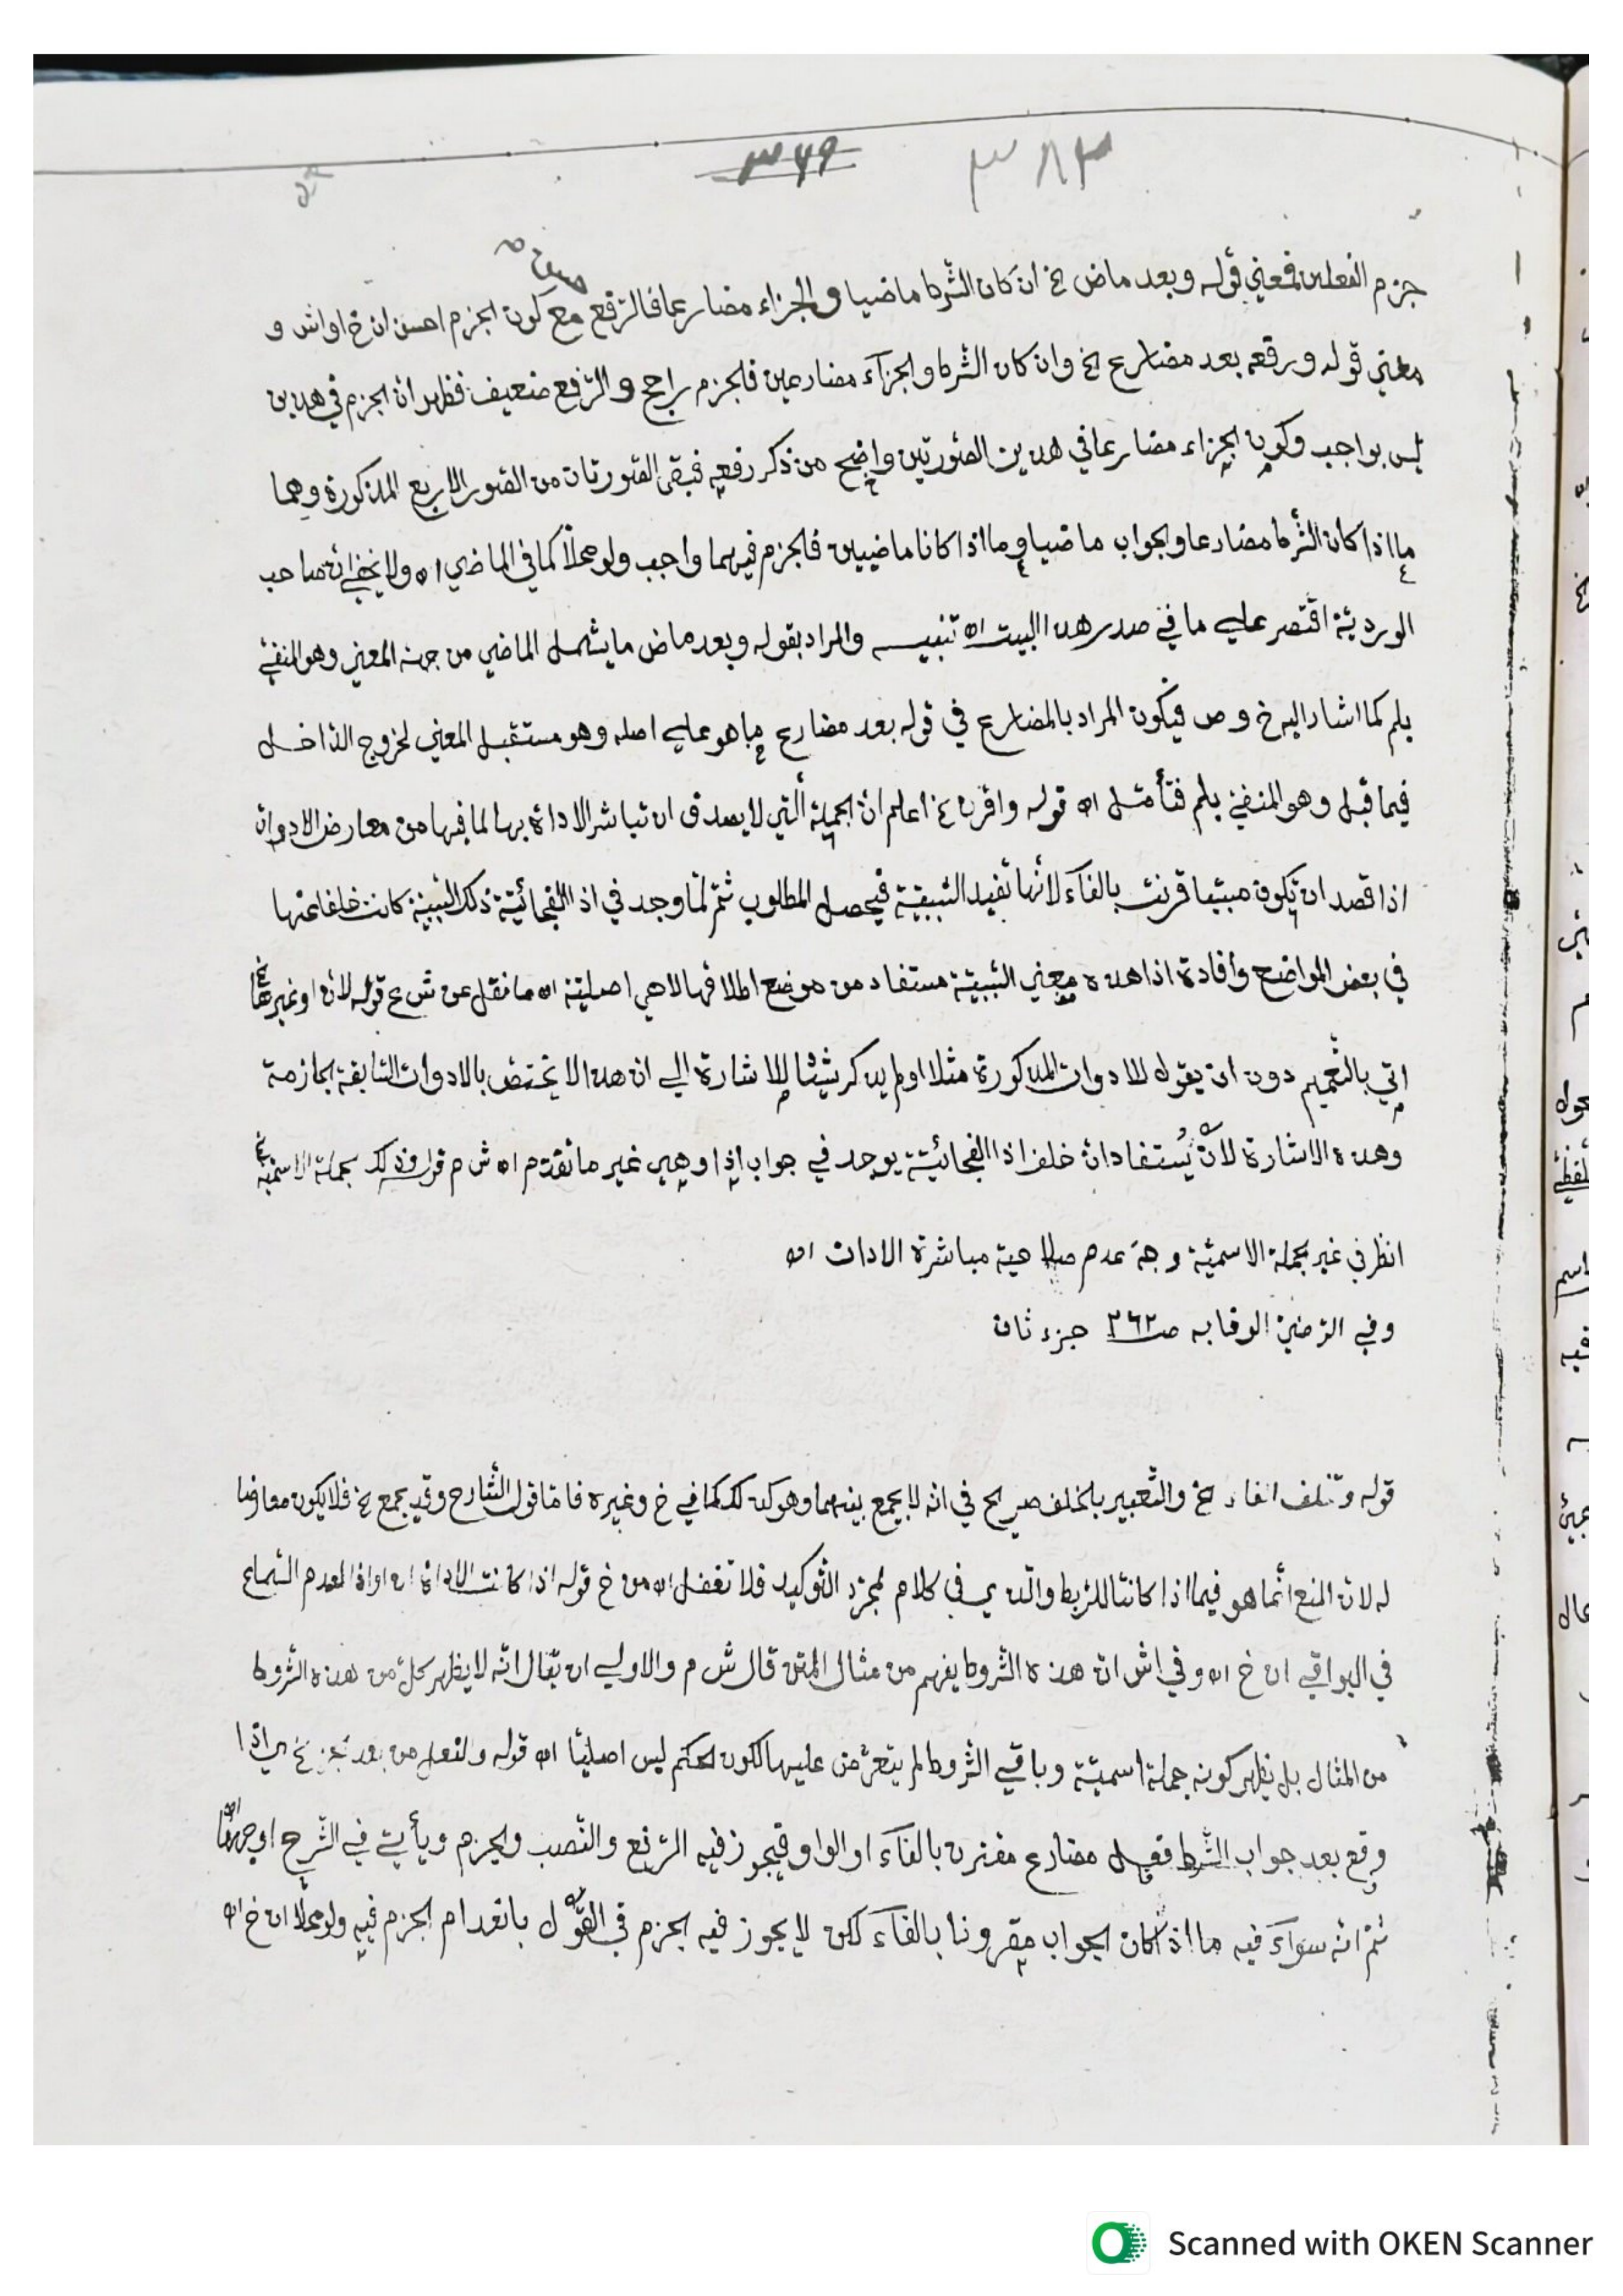 ٣٨٣ ٣٦٩
جزم الفعلين فمعني قوله وبعد ماض الخ ان كان الشرط ماضيا والجزاء مضارعا فالرفع مع كون الجزم احسن ان خ او اش و
معني قوله ورفعه بعد مضارع الخ وان كان الشرط والجزآء مضارعين فالجزم راجح والرفع ضعيف فظهر ان الجزم في هذين
ليس بواجب وكون الجزاء مضارعا في هذين الصورتين واضح من ذكر رفعه فبقي الصورتان من الصور الاربع المذكورة وهما
ما اذا كان الشرط مضارعا والجواب ماضيا وما اذا كانا ماضيين فالجزم فيهما واجب ولو محلا كما في الماضي اه ولا يخفي ان صاحب
الوردية اقتصر علي ما في صدر هذا البيت اه تنبيه والمراد بقوله وبعد ماض ما يشمل الماضي من جهة المعني وهو المنفي
بلم كما اشار اليه خ و ص فيكون المراد بالمضارع في قوله بعد مضارع ما هو علي اصله وهو مستقبل المعني لخروج الداخل
فيما قبل وهو المنفي بلم فتأمل اه قوله واقرن الخ اعلم ان الجملة التي لا يصدق ان تباشر الاداة بها لما فيها من معارض الادوان
اذا قصد ان تكون مبنيا قرنت بالفآء لأنها تفيد السببية فيحصل المطلوب ثم لما وجد في اذا الفجائية ذلك السببية كانت خلفا عنها
في بعض المواضع وافادة اذا هذه معني السببية مستفاد من موضع اطلاقها لا هي اصلية اه ما نقل عن ش ع قوله لان او غيرها
اتي بالتعميم دون ان يقول للادوات المذكورة مثلا او لم يذكر شيئا للاشارة الي ان هذا لا يختص بالادوات السابقة الجازمة
وهذه الاشارة لان يستفاد ان خلف اذا الفجائية يوجد في جواب اذا وهي غير ما تقدم اه ش م قوله وذلك الجملة الاسمية
انظر في غير الجملة الاسمية وجه عدم صلاحية مباشرة الادات اه
وفي الوفايه صـ ٢٦٢ جزء ثان
قوله وتخلف الفاء الخ والتعبير بالخلف صريح في انه لا يجمع بينهما وهو كذلك كما في خ وغيره فاما قول الشارح وقد يجمع الخ فلا يكون معارضا
له لان المنع انما هو فيما اذا كانتا للربط والذي في كلام لمجرد التوكيد فلا تغفل اه من خ قوله اذا كانت الاداة ان او اذا لعدم السماع
في البواقي ان خ اه وفي اش ان هذه الشروط يفهم من مثال المتن قال ش م والاولي ان يقال انه لا يظهر كل من هذه الشروط
من المثال بل يظهر كونه جملة اسمية وباقي الشروط لم يتعرض عليها لكون الحكم ليس اصليا اه قوله والفعل من بعد الخ اي اذا
وقع بعد جواب الشرط فعل مضارع مقترن بالفآء او الواو فيجوز فيه الرفع والنصب والجزم ويأتي في الشرح اوجهها
ثم انه سوآء فيه ما اذا كان الجواب مقرونا بالفآء لكن لا يجوز فيه الجزم في القول بانعدام الجزم فيه ولو محلا ان خ اه
Scanned with OKEN Scanner